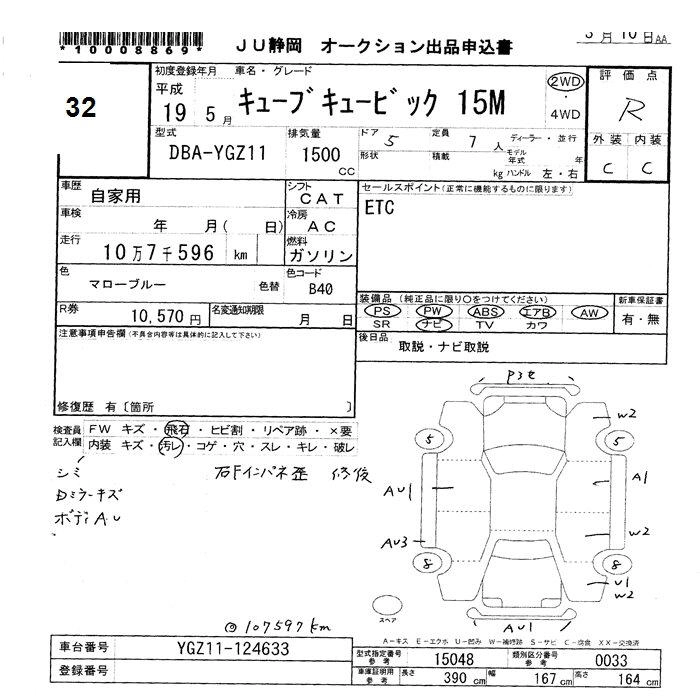 *10008869*
JU静岡 オークション出品申込書
月10日AA
32
初度登録年月 車名・グレード
平成 19 5月
キューブキュービック 15M
2WD・4WD
評価点
R
外装 内装
C C
型式 DBA-YGZ11
排気量 1500 CC
ドア 5 定員 7人 ディーラー・並行
形状 積載 kg モデル年式 年
ハンドル 左・右
車歴 自家用
シフト CAT
セールスポイント(正常に機能するものに限ります)
ETC
車検 年 月( 日)
冷房 AC
走行 10万7千596 km
燃料 ガソリン
色 マローブルー 色替
色コード B40
R券 10,570円
名変通知期限 月 日
装備品 (純正品に限り○をつけてください)
PS PW ABS エアB AW
SR ナビ TV カワ
新車保証書
有・無
後日品 取説・ナビ取説
注意事項申告欄(不具合内容等は具体的に記入して下さい)
修復歴 有〔箇所 〕
検査員記入欄
FW キズ・飛石・ヒビ割・リペア跡・×要
内装 キズ・汚レ・コゲ・穴・スレ・キレ・破レ
シミ
Dミラーキズ
ボディAU
右Fインパネ歪 修復
P3セ
W2
5
5
AU1
A1
AU3
W2
8
8
U1
W2
AU1
スペア
◎107597km
A-キズ E-エクボ U-凹み W-補修跡 S-サビ C-腐食 XX-交換済
車台番号 YGZ11-124633
登録番号
型式指定番号 参考 15048
類別区分番号 参考 0033
車庫証明用 参考 長さ 390 cm 幅 167 cm 高さ 164 cm